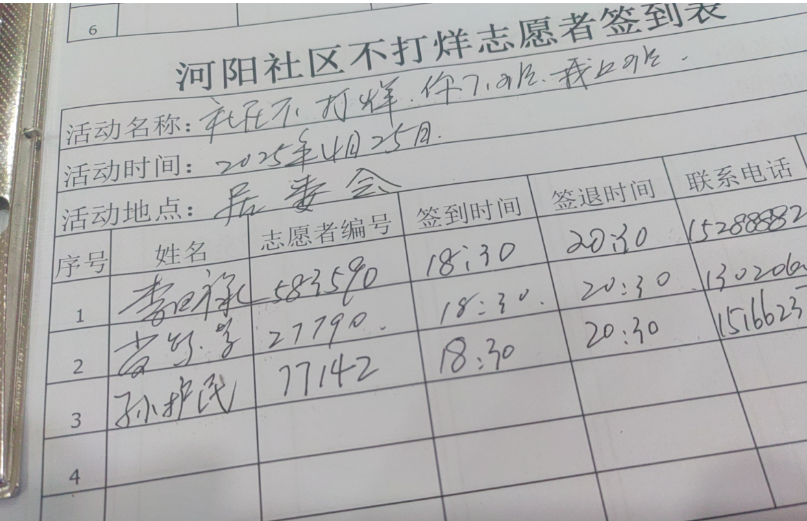 6
河阳社区不打烊志愿者签到表
活动名称：社区不打烊.你7.9点.我上9点.
活动时间：2025年4月25日.
活动地点：居委会
序号 姓名 志愿者编号 签到时间 签退时间 联系电话
1 583590 18:30 20:30 15288882
2 27790. 18:30. 20:30 130206
3 孙护民 77142 18:30 20:30 1516623
4